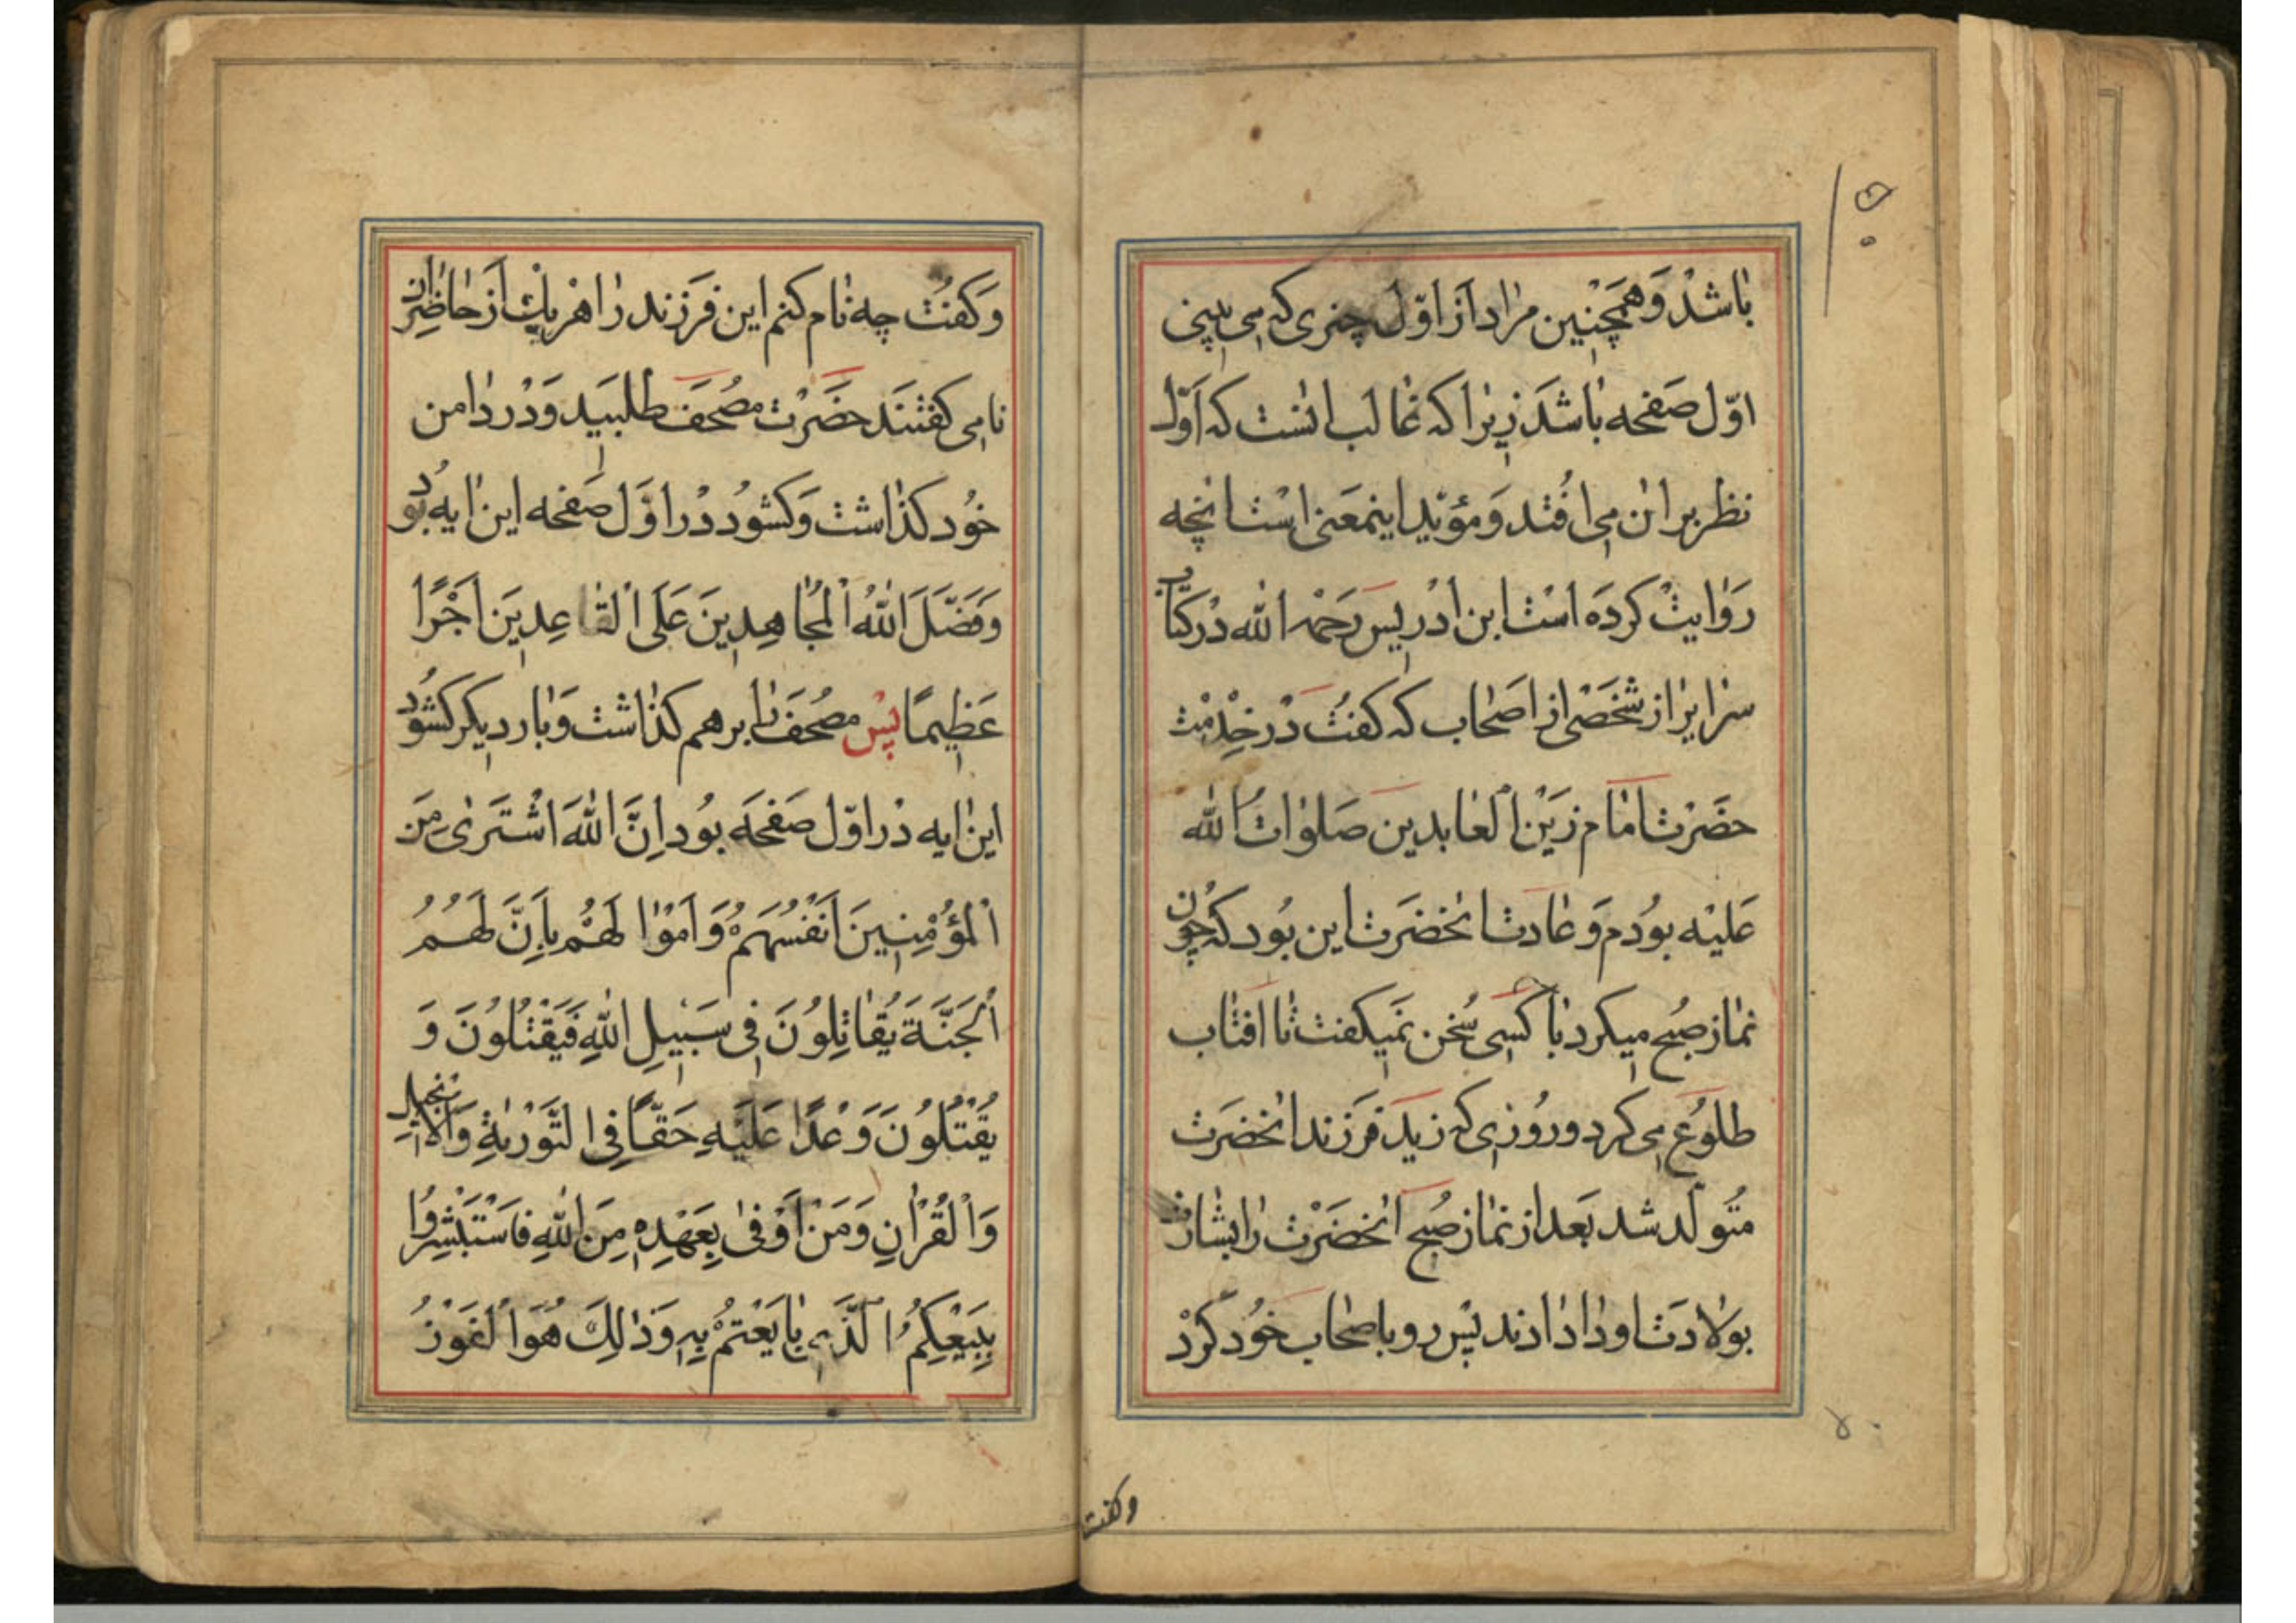 باشد و همچنین مراد از اوّل چیزی که می بینی
اوّل صفحه باشد زیرا که غالب انست که اوّل
نظر بر ان می افتد و مؤیّد اینمعنی است انچه
روایت کرده است ابن ادریس رحمه الله در کتاب
سرایر از شخصی از اصحاب که کفت در خدمت
حضرت امام زین العابدین صلوات الله
علیه بودم و عادت انحضرت این بود که چون
نماز صبح میکرد با کسی سخن نمیکفت تا افتاب
طلوع می کرد و روزی که زید فرزند انحضرت
متولّد شد بعد از نماز صبح انحضرت را بشارت
بولادت او دادند پس رو باصحاب خود کرد
وکفت
وَکفت چه نام کنم این فرزند را هر یک از حاضران
نامی کفتند حضرت مصحف طلبید و در دامن
خود کذاشت و کشود در اوّل صفحه این ایه بود
وَفَضَّلَ اللهُ الْمُجاهِدِينَ عَلَى الْقاعِدِينَ اَجْرًا
عَظِيمًا پس مصحف را برهم کذاشت و بار دیکر کشود
این ایه در اوّل صفحه بود اِنَّ اللهَ اشْتَرىٰ مِنَ
الْمُؤْمِنِينَ اَنْفُسَهُمْ وَ اَمْوٰا لَهُمْ بِاَنَّ لَهُمُ
الْجَنَّةَ يُقاتِلُونَ فِي سَبِيلِ اللهِ فَيَقْتُلُونَ وَ
يُقْتَلُونَ وَعْدًا عَلَيْهِ حَقًّا فِي التَّوْرٰيةِ وَالْاِنْجِيلِ
وَالْقُرْاٰنِ وَمَنْ اَوْفىٰ بِعَهْدِهِ مِنَ اللهِ فَاسْتَبْشِرُوا
بِبَيْعِكُمُ الَّذِي بٰايَعْتُمْ بِهِ وَذٰلِكَ هُوَ الْفَوْزُ